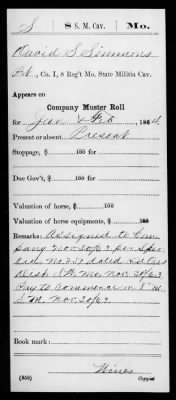 S 8 S. M. Cav. Mo.
David S Simmons
Pvt, Co. I, 8 Reg't Mo. State Militia Cav.
Appears on
Company Muster Roll
for Jan & Feb, 1864.
Present or absent Present
Stoppage, $ 100 for
Due Gov't, $ 100 for
Valuation of horse, $ 100
Valuation of horse equipments, $ 100
Remarks: Assigned to Com
pany Nov. 20/63 per Special
Order No 237 dated
Dist S.W. Mo. Nov. 20/63
Pay to commence in 8" M.
S.M. Nov. 20/63
Book mark:
(858) Hines Copyist